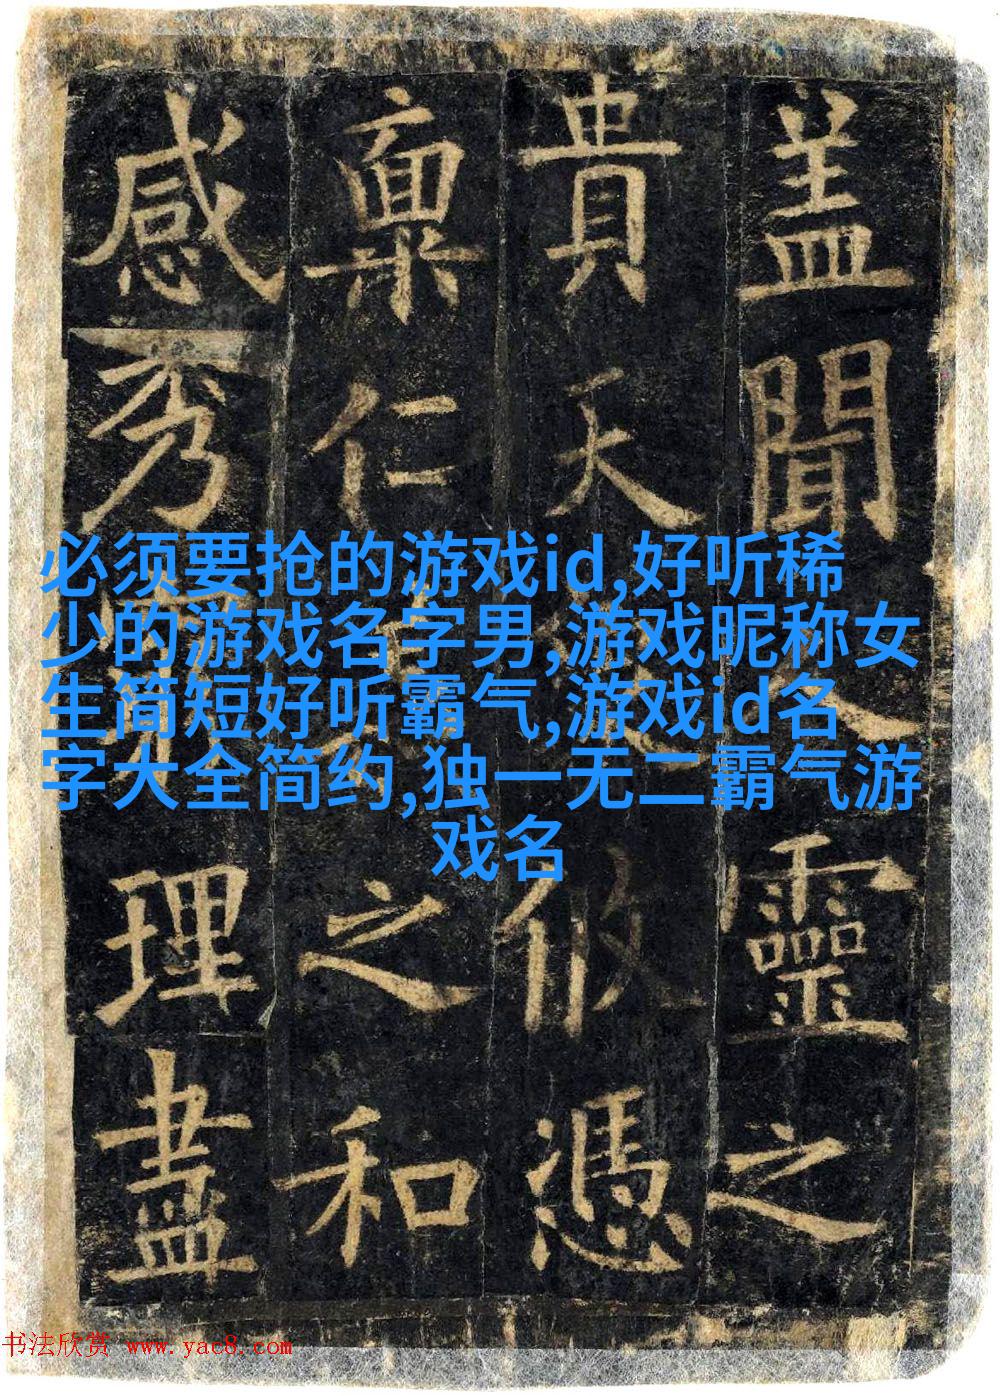 盖聞人靈之
貴天攸憑
稟仁之和
感秀理盡
必须要抢的游戏id,好听稀
少的游戏名字男,游戏昵称女
生简短好听霸气,游戏id名
字大全简约,独一无二霸气游
戏名
书法欣赏 www.yac8.com